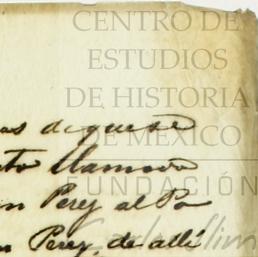 CENTRO DE
ESTUDIOS
DE HISTORIA
DE MÉXICO
FUNDACIÓN
as de que se
to llamado
n Perez al Po
n Perez, de alli